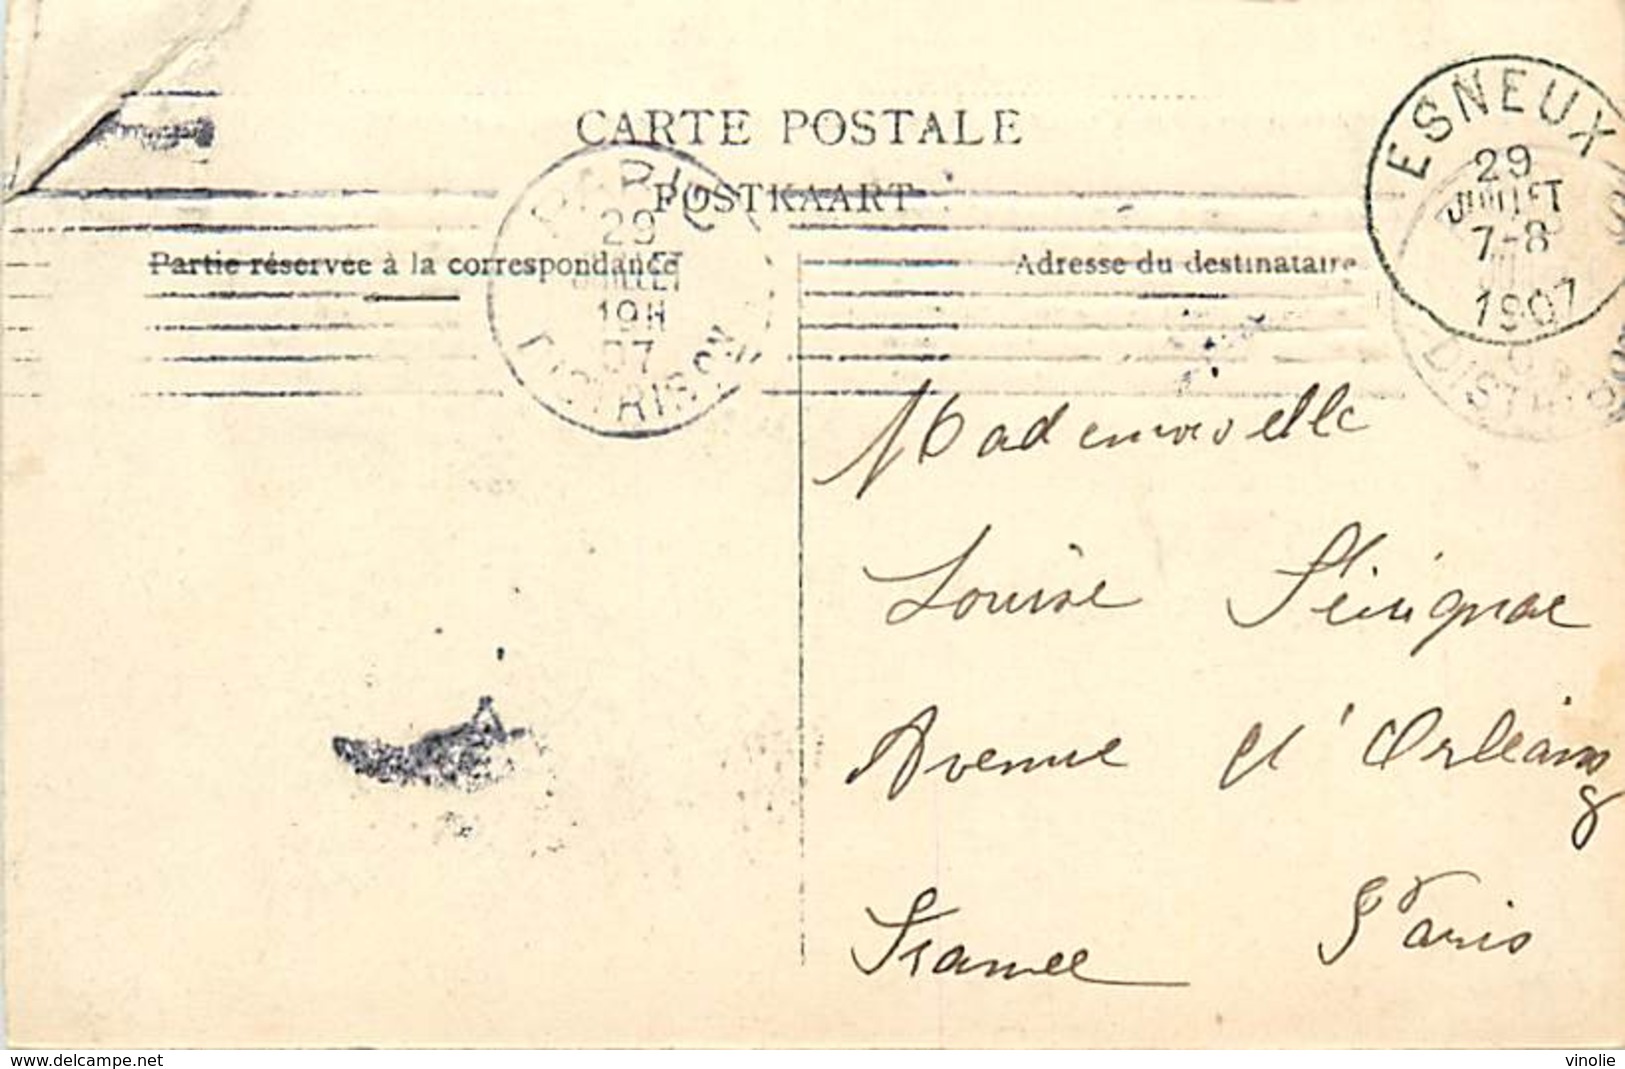 CARTE POSTALE
POSTKAART
Partie réservée à la correspondance
Adresse du destinataire
ESNEUX
29
JUILLET
7-8
1907
PARIS
29
JUILLET
19H
07
DISTRIBON
Mademoiselle
Louise
Avenue d'Orléans
8
Paris
France
www.delcampe.net
vinolie